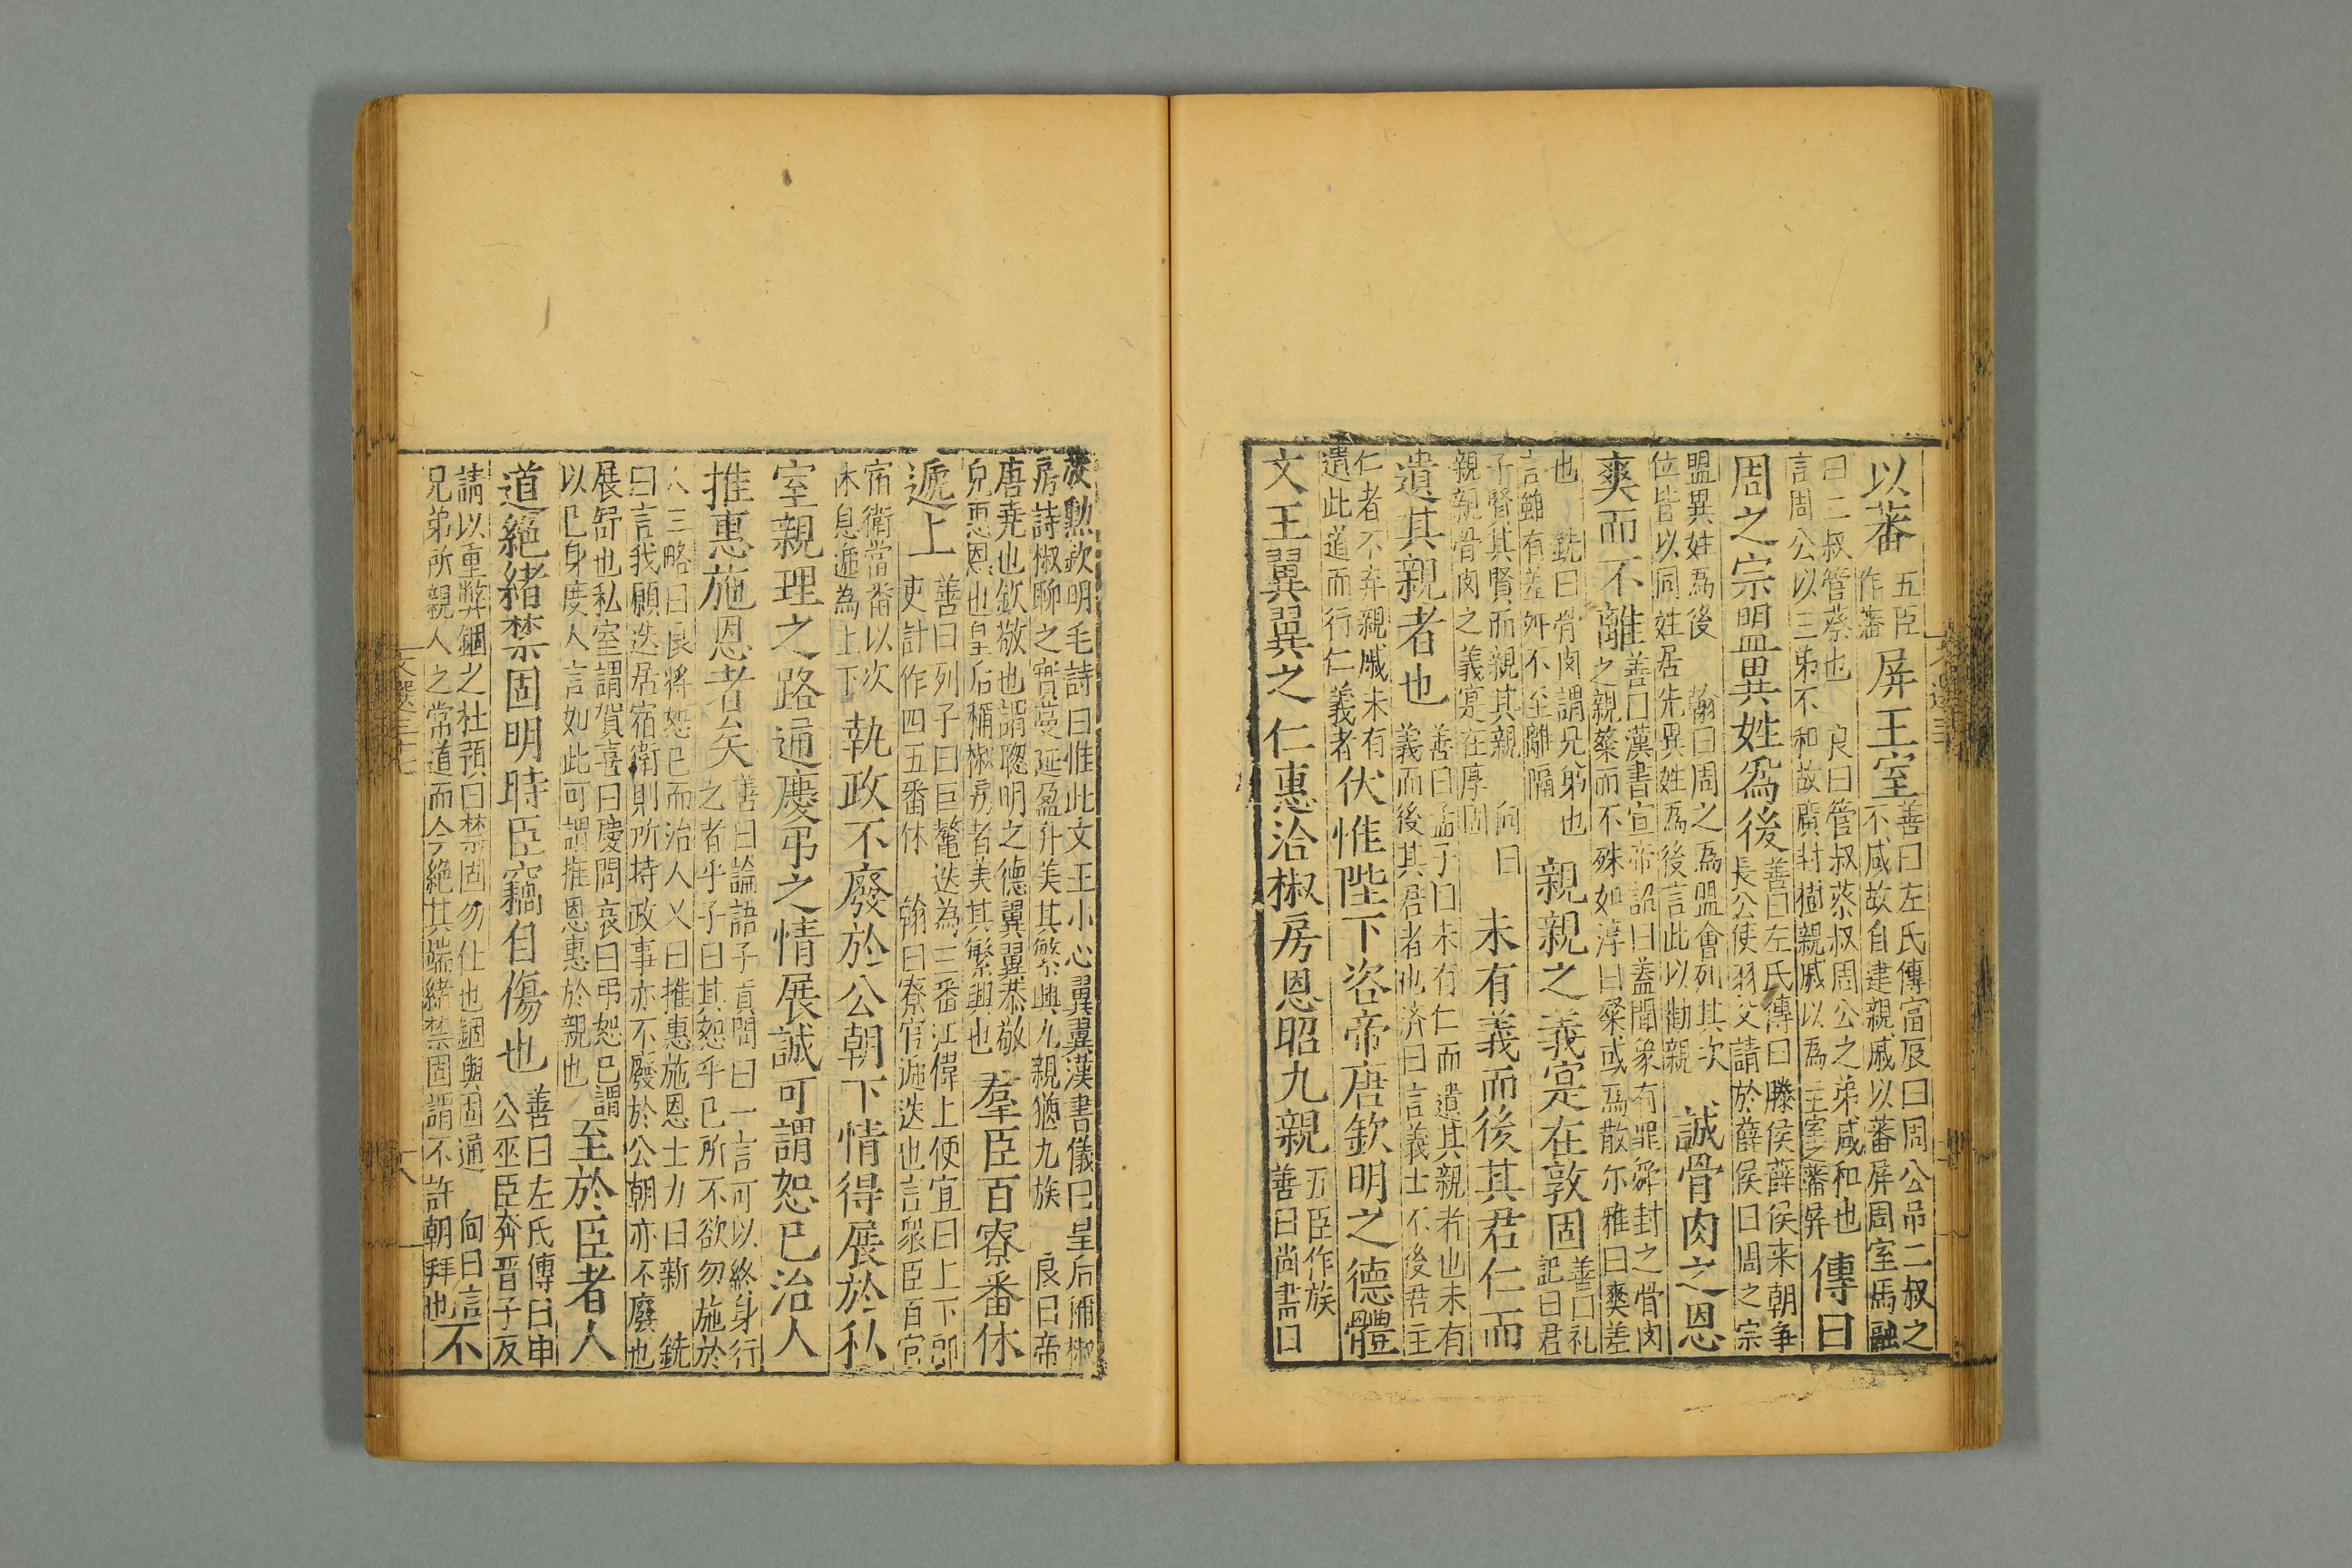 以蕃五臣作蕃屏王室善曰左氏傳富辰曰周公弔二叔之不咸故自建親戚以蕃屏周室馬融
曰二叔管蔡也 良曰管叔蔡叔周公之弟咸和也言周公以三弟不和故廣封樹親戚以為王室之藩屏傳曰
周之宗盟異姓為後善曰左氏傳曰滕侯薛侯来朝争長公使羽父請於薛侯曰周之宗
盟異姓為後 翰曰周之為盟會列其次位皆以同姓居先異姓為後言此以勸親誠骨肉之恩
爽而不離善曰漢書宣帝詔曰蓋聞象有罪舜封之骨肉之親粲而不殊如淳曰粲或為散尔雅曰爽差
也 銑曰骨肉謂兄弟也言雖有差舛不至離隔親親之義寔在敦固善曰礼記曰君
子賢其賢而親其親 向曰親親骨肉之義寔在厚固未有義而後其君仁而
遺其親者也善曰孟子曰未有仁而遺其親者也未有義而後其君者也济曰言義士不後君主
仁者不弃親戚未有遺此道而行仁義者伏惟陛下咨帝唐欽明之德體
文王翼翼之仁惠洽椒房恩昭九親五臣作族善曰尚書曰
放勲欽明毛詩曰惟此文王小心翼翼漢書儀曰皇后稱椒房詩椒聊之實蔓延盈升美其繁興九親猶九族 良曰帝
唐堯也欽敬也謂聰明之德翼翼恭敬皃惠恩也皇后稱椒房者美其繁興也羣臣百寮番休
遞上善曰列子曰巨鼇迭為三番江偉上便宜曰上下郎吏計作四五番休 翰曰寮官遞迭也言衆臣百官
宿衛當番以次休息遞為上下執政不廢於公朝下情得展於私
室親理之路通慶弔之情展誠可謂恕已治人
推惠施恩者矣善曰論語子貢問曰一言可以終身行之者乎子曰其恕乎已所不欲勿施於
人三略曰良將恕己而治人又曰推惠施恩士力日新 銑曰言我願迭居宿衛則所持政事亦不廢於公朝亦不廢也
展舒也私室謂賀喜曰慶問哀曰弔恕已謂以已身度人言如此可謂推恩惠於親也至於臣者人
道絕緒禁固明時臣竊自傷也善曰左氏傳曰申公巫臣奔晋子反
請以重弊錮之杜預曰禁固勿仕也錮與固通 向曰言兄弟所親人之常道而今絶其端緒禁固謂不許朝拜也不